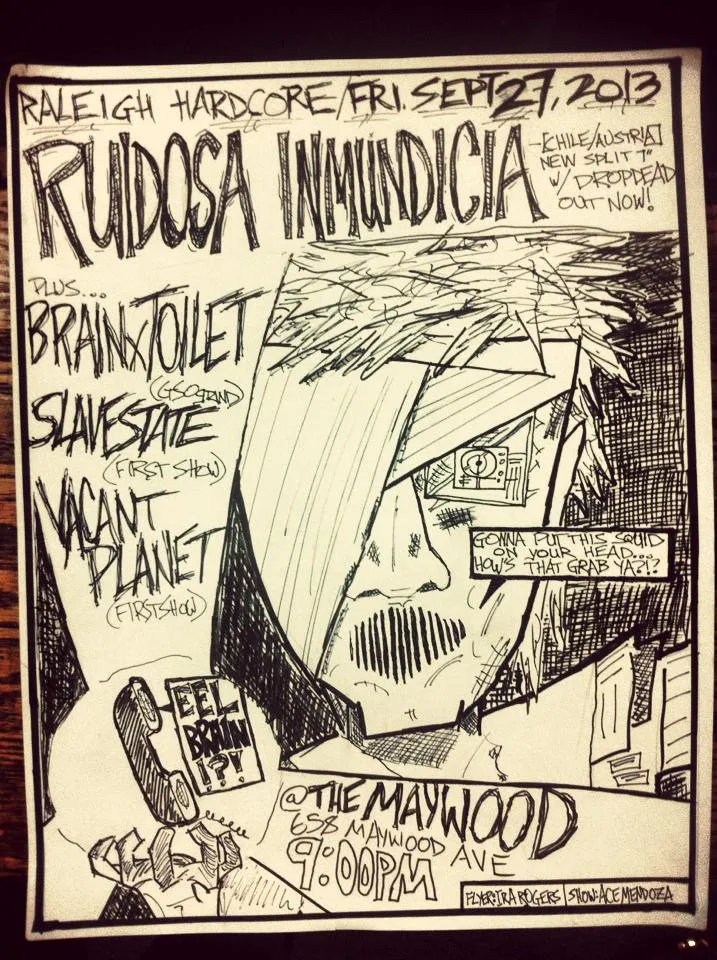 RALEIGH HARDCORE/FRI. SEPT 27, 2013
RUIDOSA INMUNDICIA
-[CHILE/AUSTRIA]
NEW SPLIT 7"
W/ DROPDEAD
OUT NOW!
PLUS...
BRAINXTOILET
(GSO GRIND)
SLAVESTATE
(FIRST SHOW)
VACANT
PLANET
(FIRST SHOW)
GONNA PUT THIS SQUID
ON YOUR HEAD...
HOW'S THAT GRAB YA?!?
EEL
BRAIN
!?!
@ THE MAYWOOD
658 MAYWOOD AVE
9:00PM
FLYER: IRA ROGERS | SHOW: ACE MENDOZA